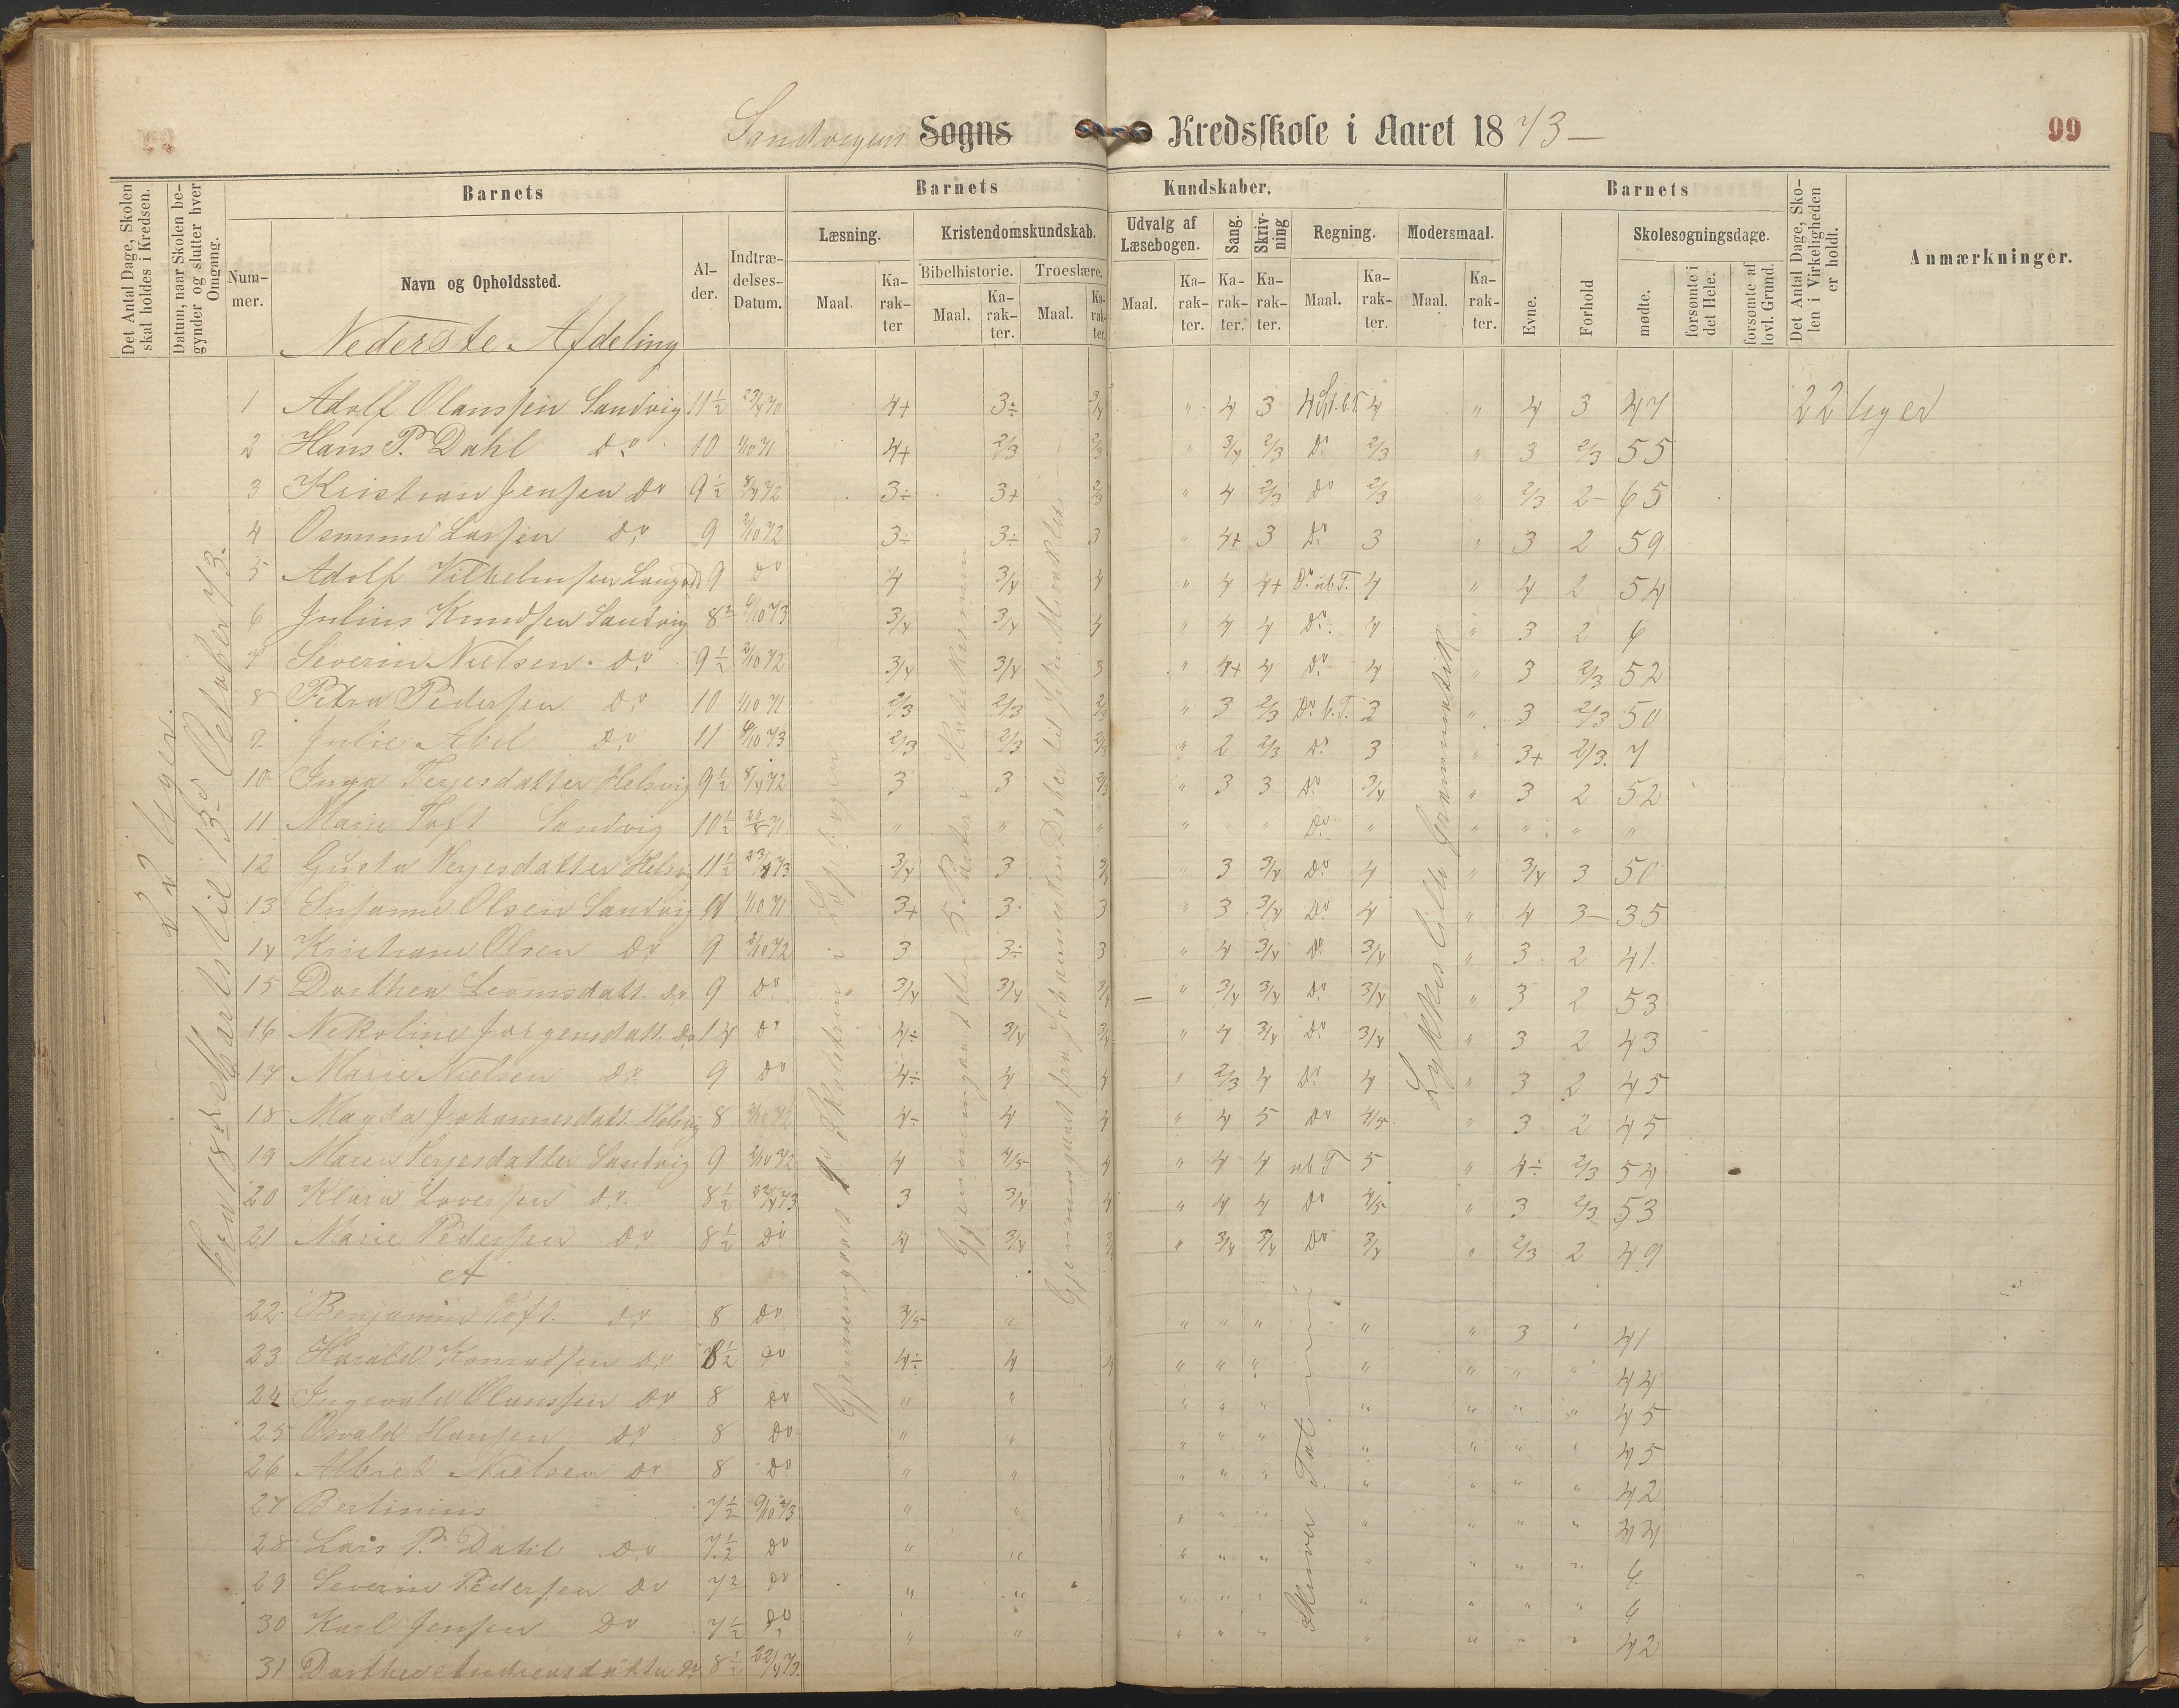 Sandvigens Sogns Kredsskole i Aaret 1873 — 99
Det Antal Dage, Skolen skal holdes i Kredsen.
Datum, naar Skolen begynder og slutter hver Omgang.
Barnets
Nummer.
Navn og Opholdssted.
Alder.
Indtrædelses-Datum.
Barnets Kundskaber.
Læsning. Maal. Karakter
Kristendomskundskab.
Bibelhistorie. Maal. Karakter.
Troeslære. Maal. Karakter.
Udvalg af Læsebogen. Maal. Karakter.
Sang. Karakter.
Skrivning Karakter.
Regning. Maal. Karakter.
Modersmaal. Maal. Karakter.
Barnets
Evne.
Forhold
Skolesøgningsdage.
mødte.
forsømte i det Hele.
forsømte af lovl. Grund.
Det Antal Dage, Skolen i Virkeligheden er holdt.
Anmærkninger.
Nederste Afdeling
22 Uger.
Fra 18de Marts til 13d October 73.
Gjennemgaaet
Lykkes lille Grammatik
Skriver Tal
1 Adolf Olanssen Sandvig 11½ 23/4 70 4+ 3÷ 3/4 " 4 3 4 4 " 4 3 47 22 Uger
2 Hans P. Dahl do 10 1/10 71 4+ 2/3 2/3 " 3/4 2/3 Do 2/3 " 3 2/3 55
3 Kristian Jensen do 9½ 8/4 72 3÷ 3+ 2/3 " 4 2/3 Do 2/3 " 2/3 2- 65
4 Osmund Larssen do 9 2/10 72 3÷ 3÷ 3 " 4+ 3 Do 3 " 3 2 59
5 Adolf Vilhelmsen 9 do 4 3/4 4 " 4 4+ Do ub T. 4 " 4 2 54
6 Julius Knudsen Sandvig 8½ 6/10 73 3/4 3/4 4 " 4 4 Do 4 " 3 2 6
7 Severin Nielsen do 9½ 2/10 72 3/4 3/4 3 " 4+ 4 Do 4 " 3 2/3 52
8 Petra Pedersen do 10 1/10 71 2/3 2/3 2/3 " 3 2/3 Do b. T. 3 " 3 2/3 50
9 Julie Abel do 11 6/10 73 2/3 2/3 2/3 " 2 2/3 Do 3 " 3+ 2/3 7
10 Inga Terjesdatter Helsvig 9½ 8/4 72 3 3 2/3 " 3 3 Do 3/4 " 3 2 52
11 Marie Toft Sandvig 10½ 20/8 71 " " " " " " Do " " " " "
12 Gusta Terjesdatter Helsvig 11½ 23/4 73 3/4 3 3/4 " 3 3/4 Do 4 " 3/4 3 50
13 Susanne Olsen Sandvig 1/10 71 3+ 3 3 " 3 3/4 Do 4 " 4 3- 35
14 Kristiane Olsen do 9 2/10 72 3 3÷ 3 " 4 3/4 Do 3/4 " 3 2 41
15 Dorthea Leonisdatt. do 9 do 3/4 3/4 3/4 " 3/4 3/4 Do 3/4 " 3 2 53
16 Nekoline Jørgensdatt. do do 4÷ 3/4 3/4 " 4 3/4 Do 3/4 " 3 2 43
17 Marie Nielsen do 9 do 4÷ 4 4 " 2/3 4 Do 4 " 3 2 45
18 Magda Johannesdatt. Helsvig 8 2/10 72 4÷ 4 4 " 4 5 Do 4/5 " 3 2 45
19 Maren Terjesdatter Sandvig 9 2/10 72 4 4/5 4 " 4 4 ub T 5 " 4÷ 2/3 54
20 Klara Loversen do 8½ 22/4 73 3 3/4 4 " 4 4 Do 4/5 " 3 2/3 53
21 Marie Pedersen do 8½ do 4 3/4 " 3/4 3/4 Do 3/4 " 2/3 2 49
A
22 Benjamin Toft do 8 do 4/5 " " " " " " " 3 " 41
23 Harald Konradsen do 8½ do 4÷ 4 4 " " " " " " " 44
24 Ingevald Olanssen do 8 do " " " " " " " " " 45
25 Osvald Hansen do 8 do " " " " " " " " " 45
26 Albrek Nielsen do 8 do " " " " " " " " " 42
27 Bertinius 7½ 9/10 73 " " " " " " " " " 44
28 Lars P. Dahl do 7½ do " " " " " " " " " 6
29 Severin Pedersen do 7½ do " " " " " " " " " 6
30 Karl Jensen do 7½ do " " " " " " " " " 42
31 Dorthea Andreasdatter do 8½ 22/4 73